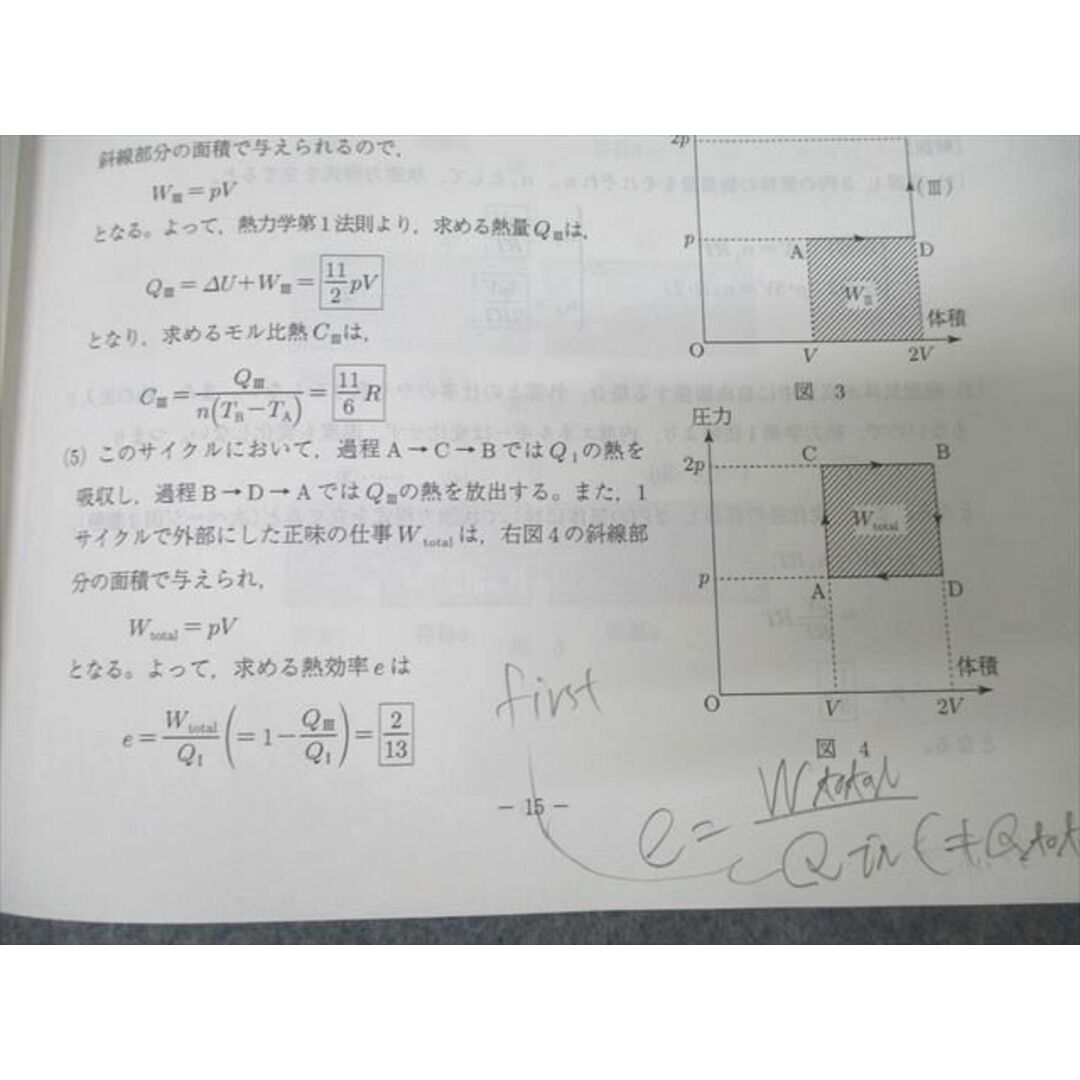 斜線部分の面積で与えられるので,
WⅢ = pV
となる。よって, 熱力学第1法則より, 求める熱量QⅢは,
QⅢ = ΔU + WⅢ = 11/2 pV
となり, 求めるモル比熱CⅢは,
CⅢ = QⅢ/n(TB − TA) = 11/6 R
(5) このサイクルにおいて, 過程A→C→BではQⅠの熱を
吸収し, 過程B→D→AではQⅢの熱を放出する。また, 1
サイクルで外部にした正味の仕事Wtotalは, 右図4の斜線部
分の面積で与えられ,
Wtotal = pV
となる。よって, 求める熱効率eは
e = Wtotal/QⅠ (= 1 − QⅢ/QⅠ) = 2/13
2p
(Ⅲ)
p
A
D
WⅢ
体積
O
V
2V
図 3
圧力
2p
C
B
Wtotal
p
A
D
体積
O
V
2V
図 4
first
e = Wtotal/Qin (≠Qtot
− 15 −